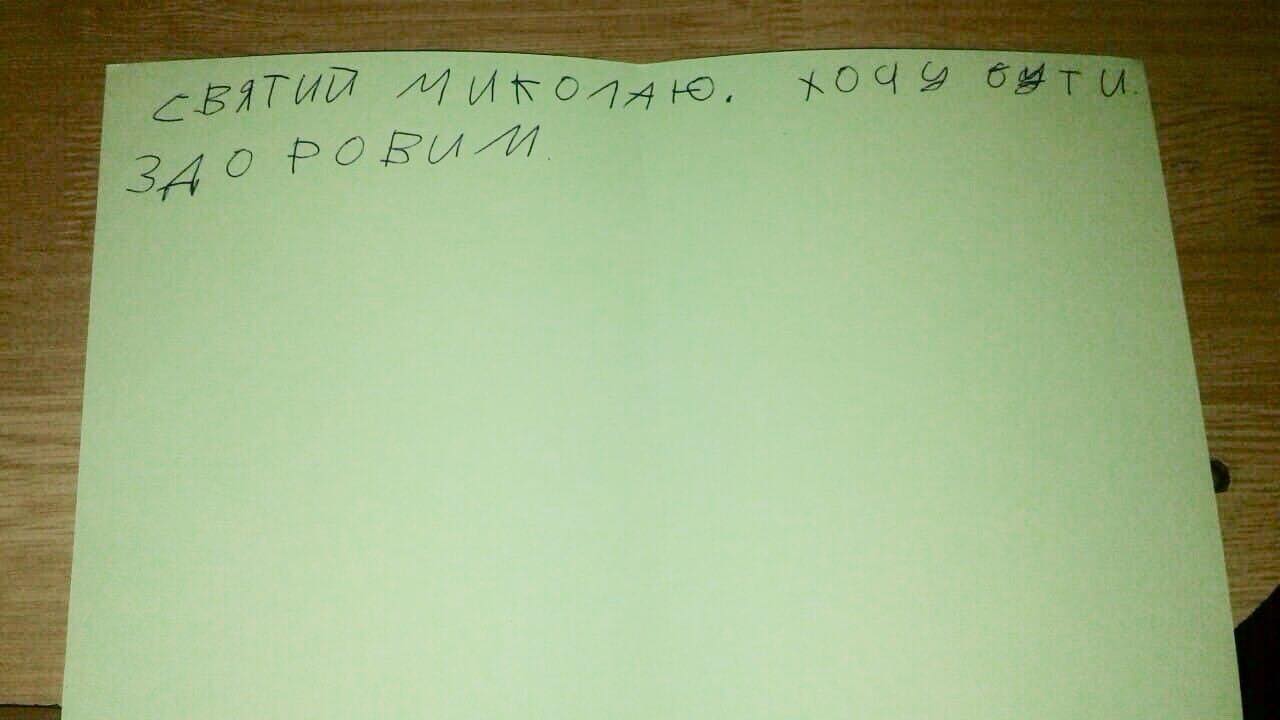 СВЯТИЙ МИКОЛАЮ. ХОЧУ БУТИ.
ЗДОРОВИМ.